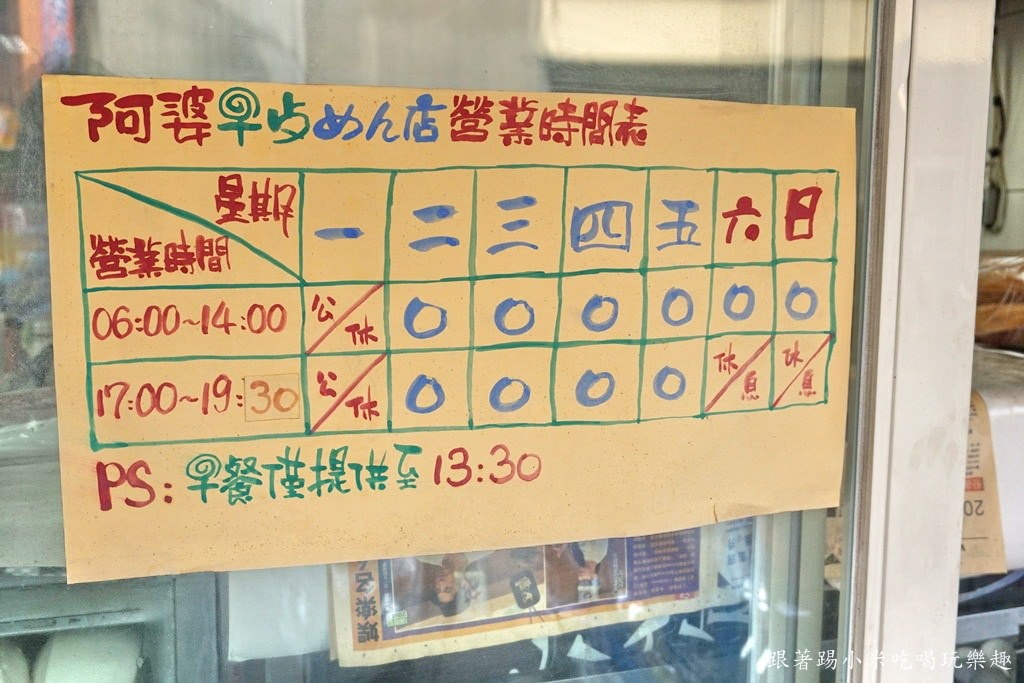 阿婆早点めん店營業時間表
星期 一 二 三 四 五 六 日
營業時間
06:00~14:00 公休 O O O O O O
17:00~19:30 公休 O O O O 休息 休息
PS: 早餐僅提供至 13:30
跟著踢小米吃喝玩樂趣